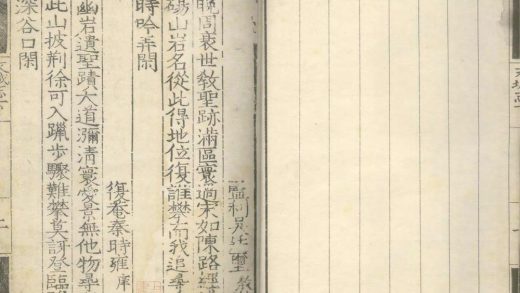 監利吳廷璽
晚周衰世教聖跡滿區寰過宋如陳路經
碭山岩名從此得地位復誰攀而我追尋
時吟弄閑
復菴秦時雍 庠
幽岩遺聖蹟大道瀰清寰景無他物尋
此山披荊徐可入躐步驟難攀莫訝登臨
深谷口閑